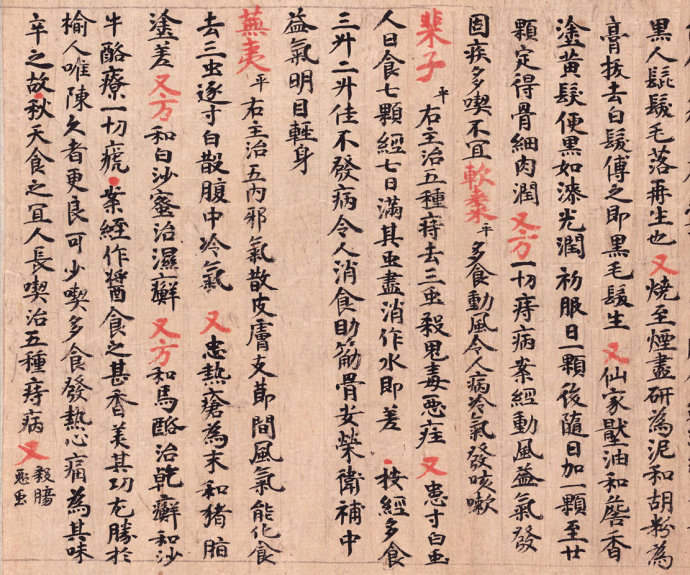 黑人髭髮毛落再生也 又燒至煙盡研為泥和胡粉為
膏拔去白髮傅之即黑毛髮生 又仙家壓油和詹香
塗黃髮便黑如漆光潤 初服日一顆後隨日加一顆至廿
顆定得骨細肉潤 又方一切痔病案經動風益氣發
固疾多喫不宜 軟棗平 多食動風令人病冷氣發咳嗽
榧子平 右主治五種痔去三虫殺鬼毒惡疰 又患寸白虫
人日食七顆經七日滿其虫盡消作水即差 按經多食
三升二升佳不發病令人消食助筋骨安榮衛補中
益氣明目輕身
蕪荑平 右主治五內邪氣散皮膚支節間風氣能化食
去三虫逐寸白散腹中冷氣 又患熱瘡為末和猪脂
塗差 又方和白沙蜜治濕癬 又方和馬酪治乾癬和沙
牛酪療一切瘡 案經作醬食之甚香美其功尤勝於
榆人唯陳久者更良可少喫多食發熱心痛為其味
辛之故秋天食之宜人長喫治五種痔病 又殺腸惡虫